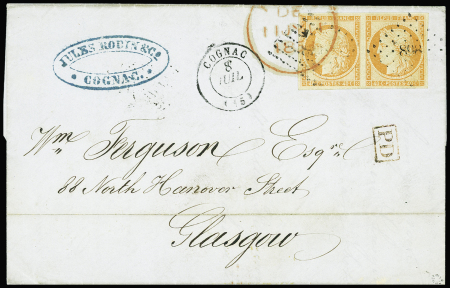 JULES ROBIN & Co.
COGNAC.
COGNAC
8
JUIL
(15)
898
PD
Wm Ferguson Esqre
88 North Hanover Street
Glasgow